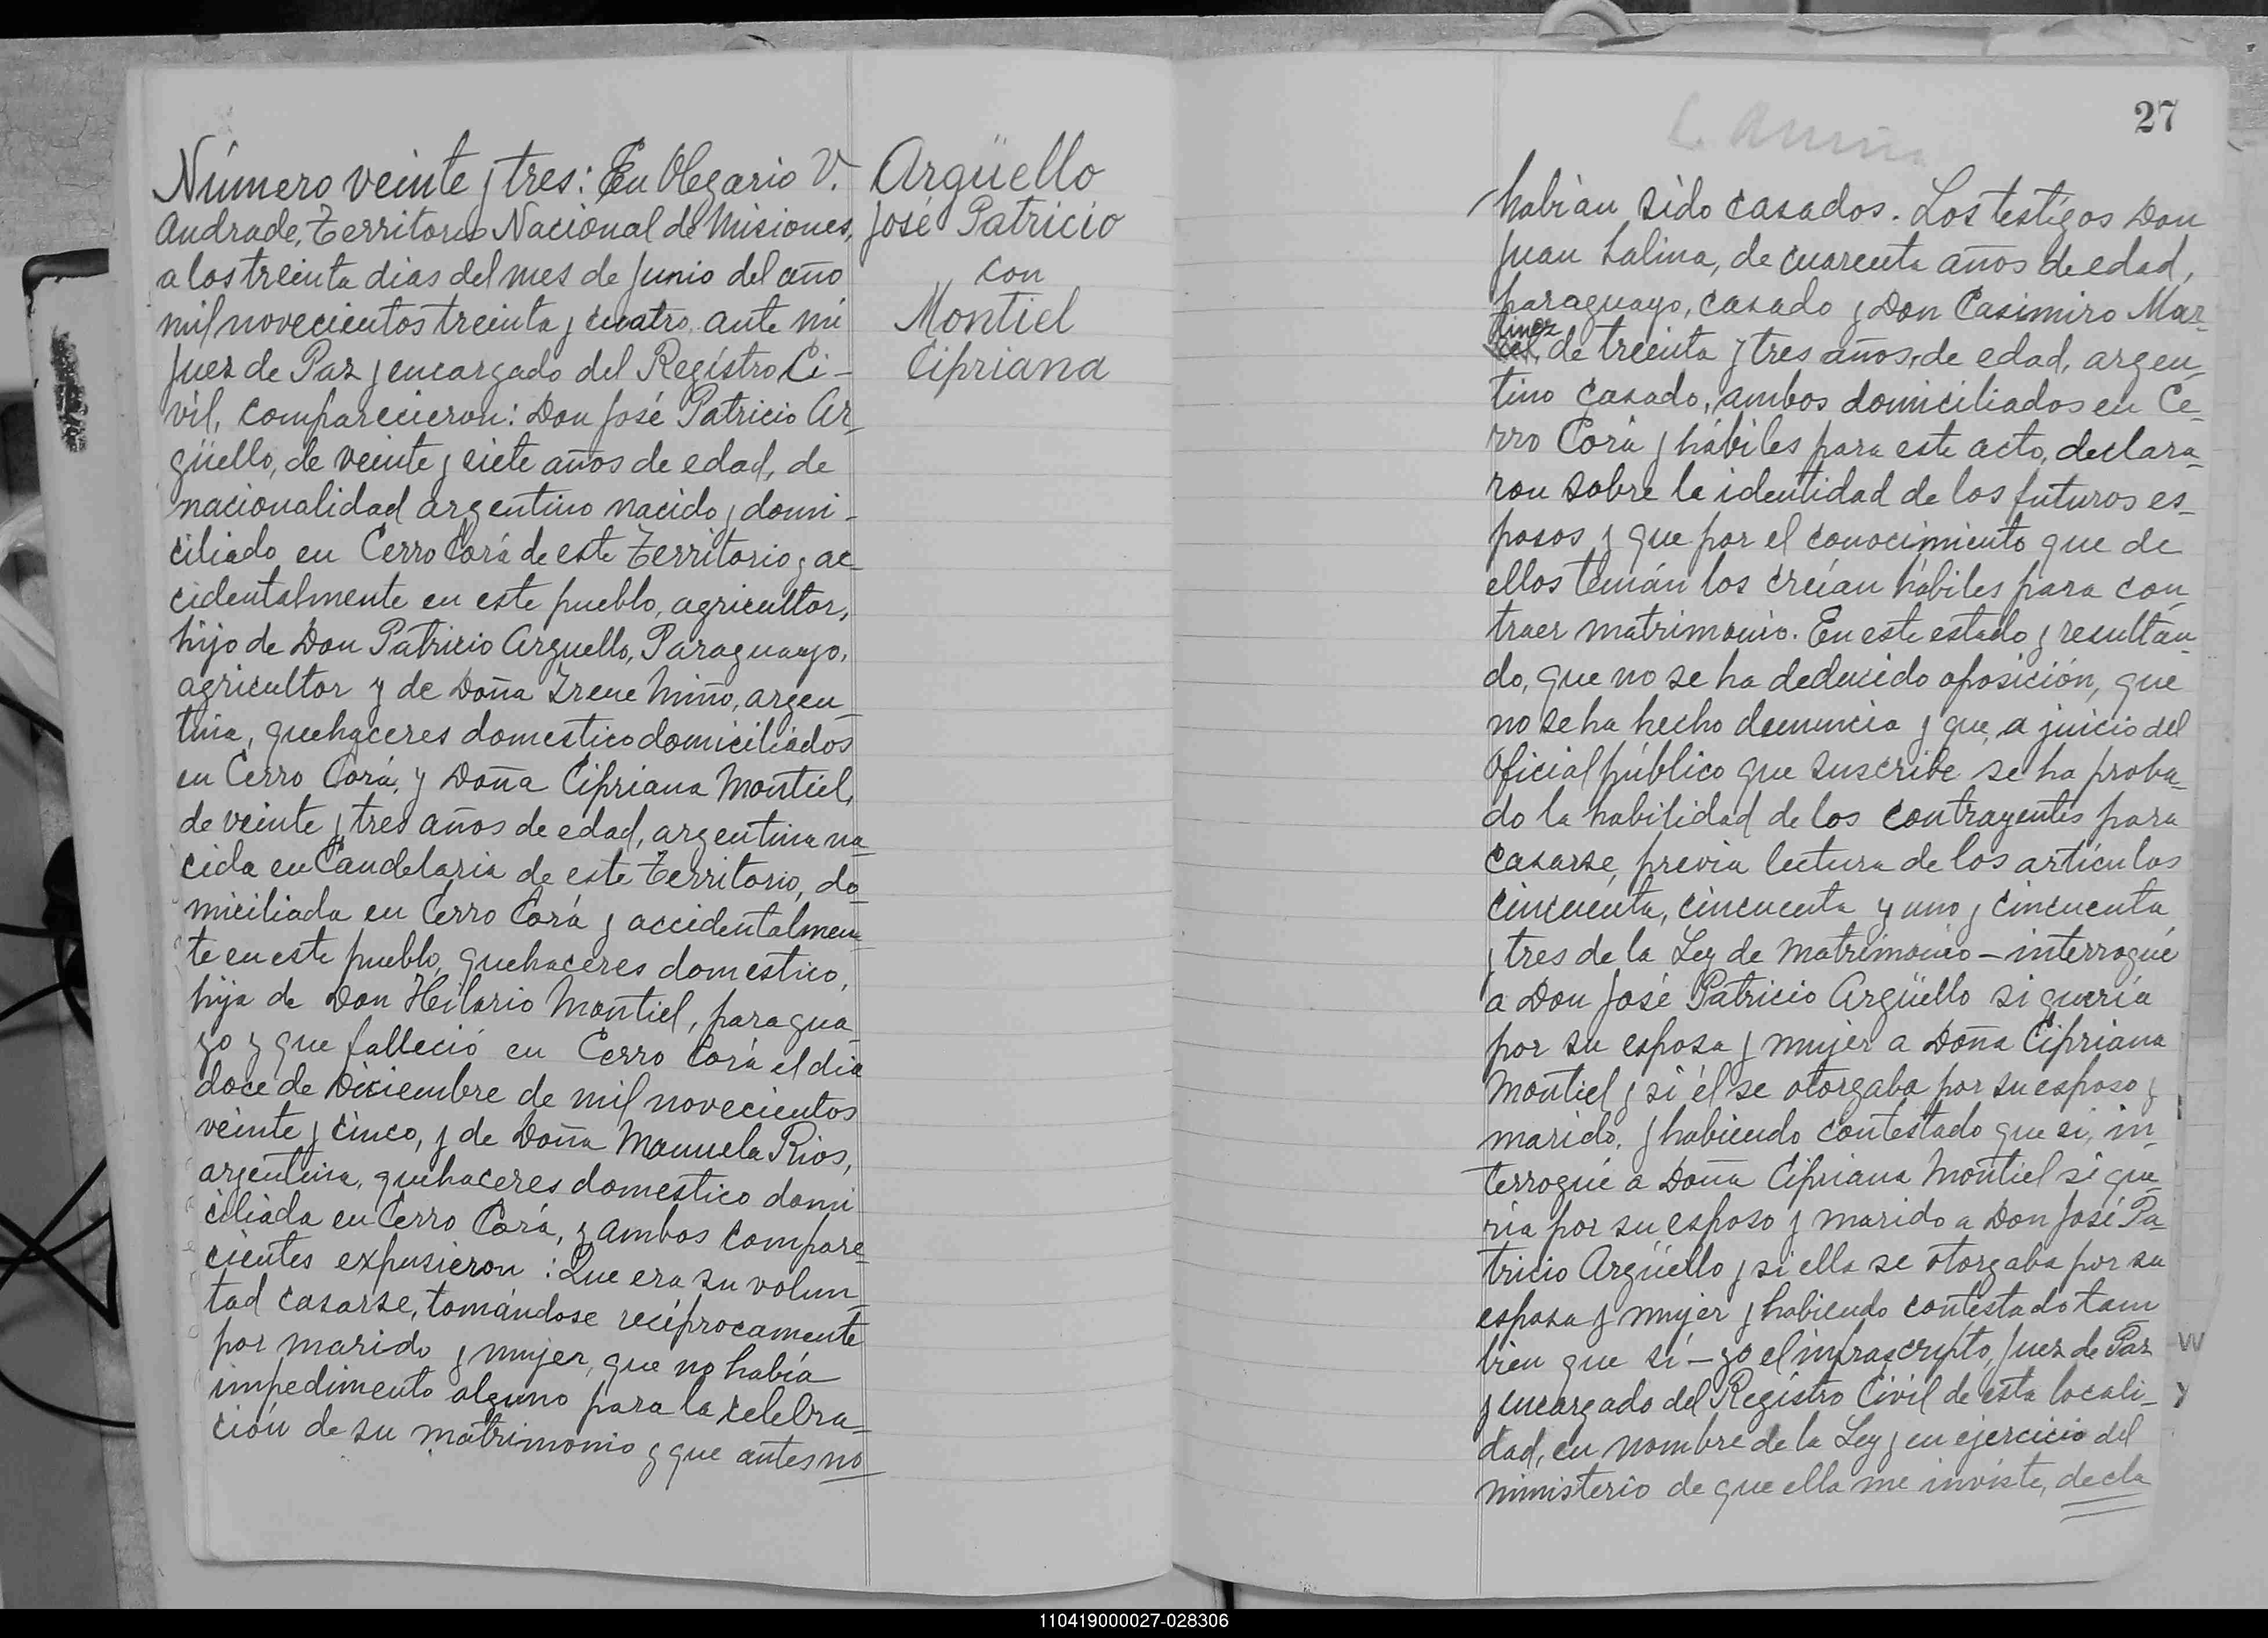 Número veinte y tres: En Olegario V.
Andrade, Territorio Nacional de Misiones,
a los treinta dias del mes de Junio del año
mil novecientos treinta y cuatro, ante mi
Juez de Paz y encargado del Registro Ci-
vil, comparecieron: Don José Patricio Ar-
güello, de veinte y siete años de edad, de
nacionalidad argentino nacido y domi-
ciliado en Cerro Corá de este Territorio y ac-
cidentalmente en este pueblo, agricultor,
hijo de Don Patricio Arguello, Paraguayo,
agricultor y de Doña Irene Miño, argen-
tina, quehaceres domestico domiciliados
en Cerro Corá, y Doña Cipriana Montiel,
de veinte y tres años de edad, argentina na-
cida en Candelaria de este Territorio, do-
miciliada en Cerro Corá y accidentalmen-
te en este pueblo, quehaceres domestico,
hija de Don Hilario Montiel, paragua-
yo y que falleció en Cerro Corá el dia
doce de Diciembre de mil novecientos
veinte y cinco, y de Doña Manuela Rios,
argentina, quehaceres domestico domi
ciliada en Cerro Corá, y ambos compare-
cientes expusieron: Que era su volun-
tad casarse, tomándose recíprocamente
por marido y mujer, que no había
impedimento alguno para la celebra-
ción de su matrimonio y que antes no
Argüello
José Patricio
con
Montiel
Cipriana
27
habían sido casados. Los testigos Don
Juan Salina, de cuarenta años de edad,
paraguayo, casado y Don Casimiro Mar-
tinez
de treinta y tres años, de edad, argen-
tino casado, ambos domiciliados en Ce-
rro Corá y hábiles para este acto, declara-
ron sobre la identidad de los futuros es-
posos y que por el conocimiento que de
ellos tenián los creían hábiles para con-
traer matrimonio. En este estado y resultan-
do, que no se ha deducido oposición, que
no se ha hecho denuncia y que, a juicio del
Oficial público que suscribe se ha proba-
do la habilidad de los contrayentes para
casarse, previa lectura de los artículos
cincuenta, cincuenta y uno y cincuenta
y tres de la Ley de Matrimonio - interrogué
a Don José Patricio Argüello si quería
por su esposa y mujer a Doña Cipriana
Montiel y si él se otorgaba por su esposo y
marido, y habiendo contestado que si, in-
terrogué a Doña Cipriana Montiel si que-
ria por su esposo y marido a Don José Pa-
tricio Argüello y si ella se otorgaba por su
esposa y mujer y habiendo contestado tam
bien que si - yo el infrascripto, Juez de Paz
y encargado del Registro Civil de esta locali-
dad, en nombre de la Ley y en ejercicio del
ministerio de que ella me inviste, decla
110419000027-028306